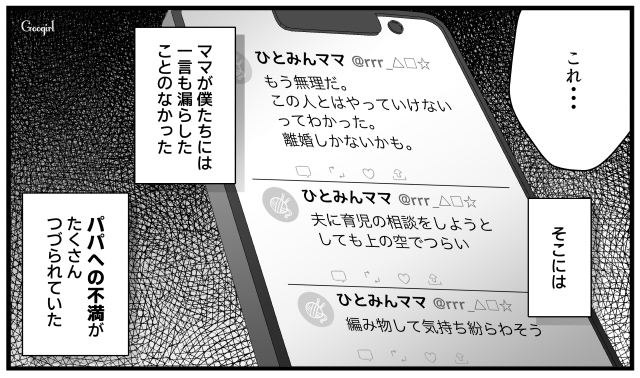 Googirl
これ・・・
そこには
ママが僕たちには
一言も漏らした
ことのなかった
ひとみんママ @rrr_△□☆
もう無理だ。
この人とはやっていけない
ってわかった。
離婚しかないかも。
ひとみんママ @rrr_△□☆
夫に育児の相談をしようと
しても上の空でつらい
ひとみんママ @rrr_△□☆
編み物して気持ち紛らわそう
パパへの不満が
たくさん
つづられていた